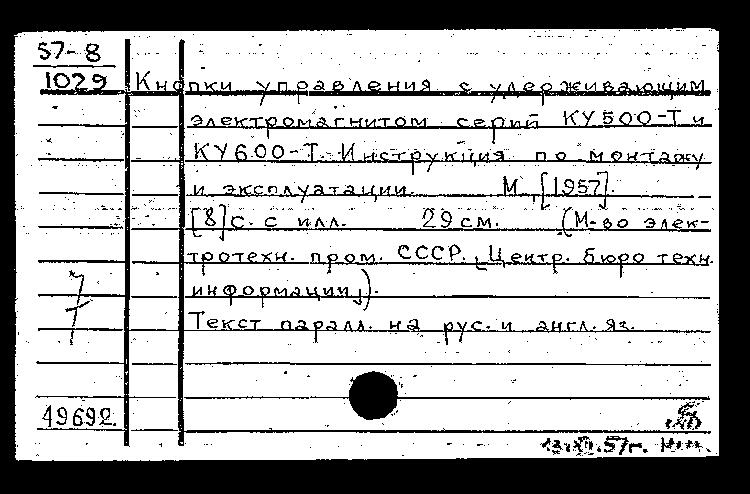 57-8
1029 Кнопки управления с удерживающим
электромагнитом серий КУ500-Т и
КУ600-Т. Инструкция по монтажу
и эксплуатации. М., [1957].
[8] с. с илл. 29 см. (М-во элек-
тротехн. пром. СССР. [Центр. бюро техн.
информации]).
7
Текст паралл. на рус. и англ. яз.
49692
13.XII.57г.